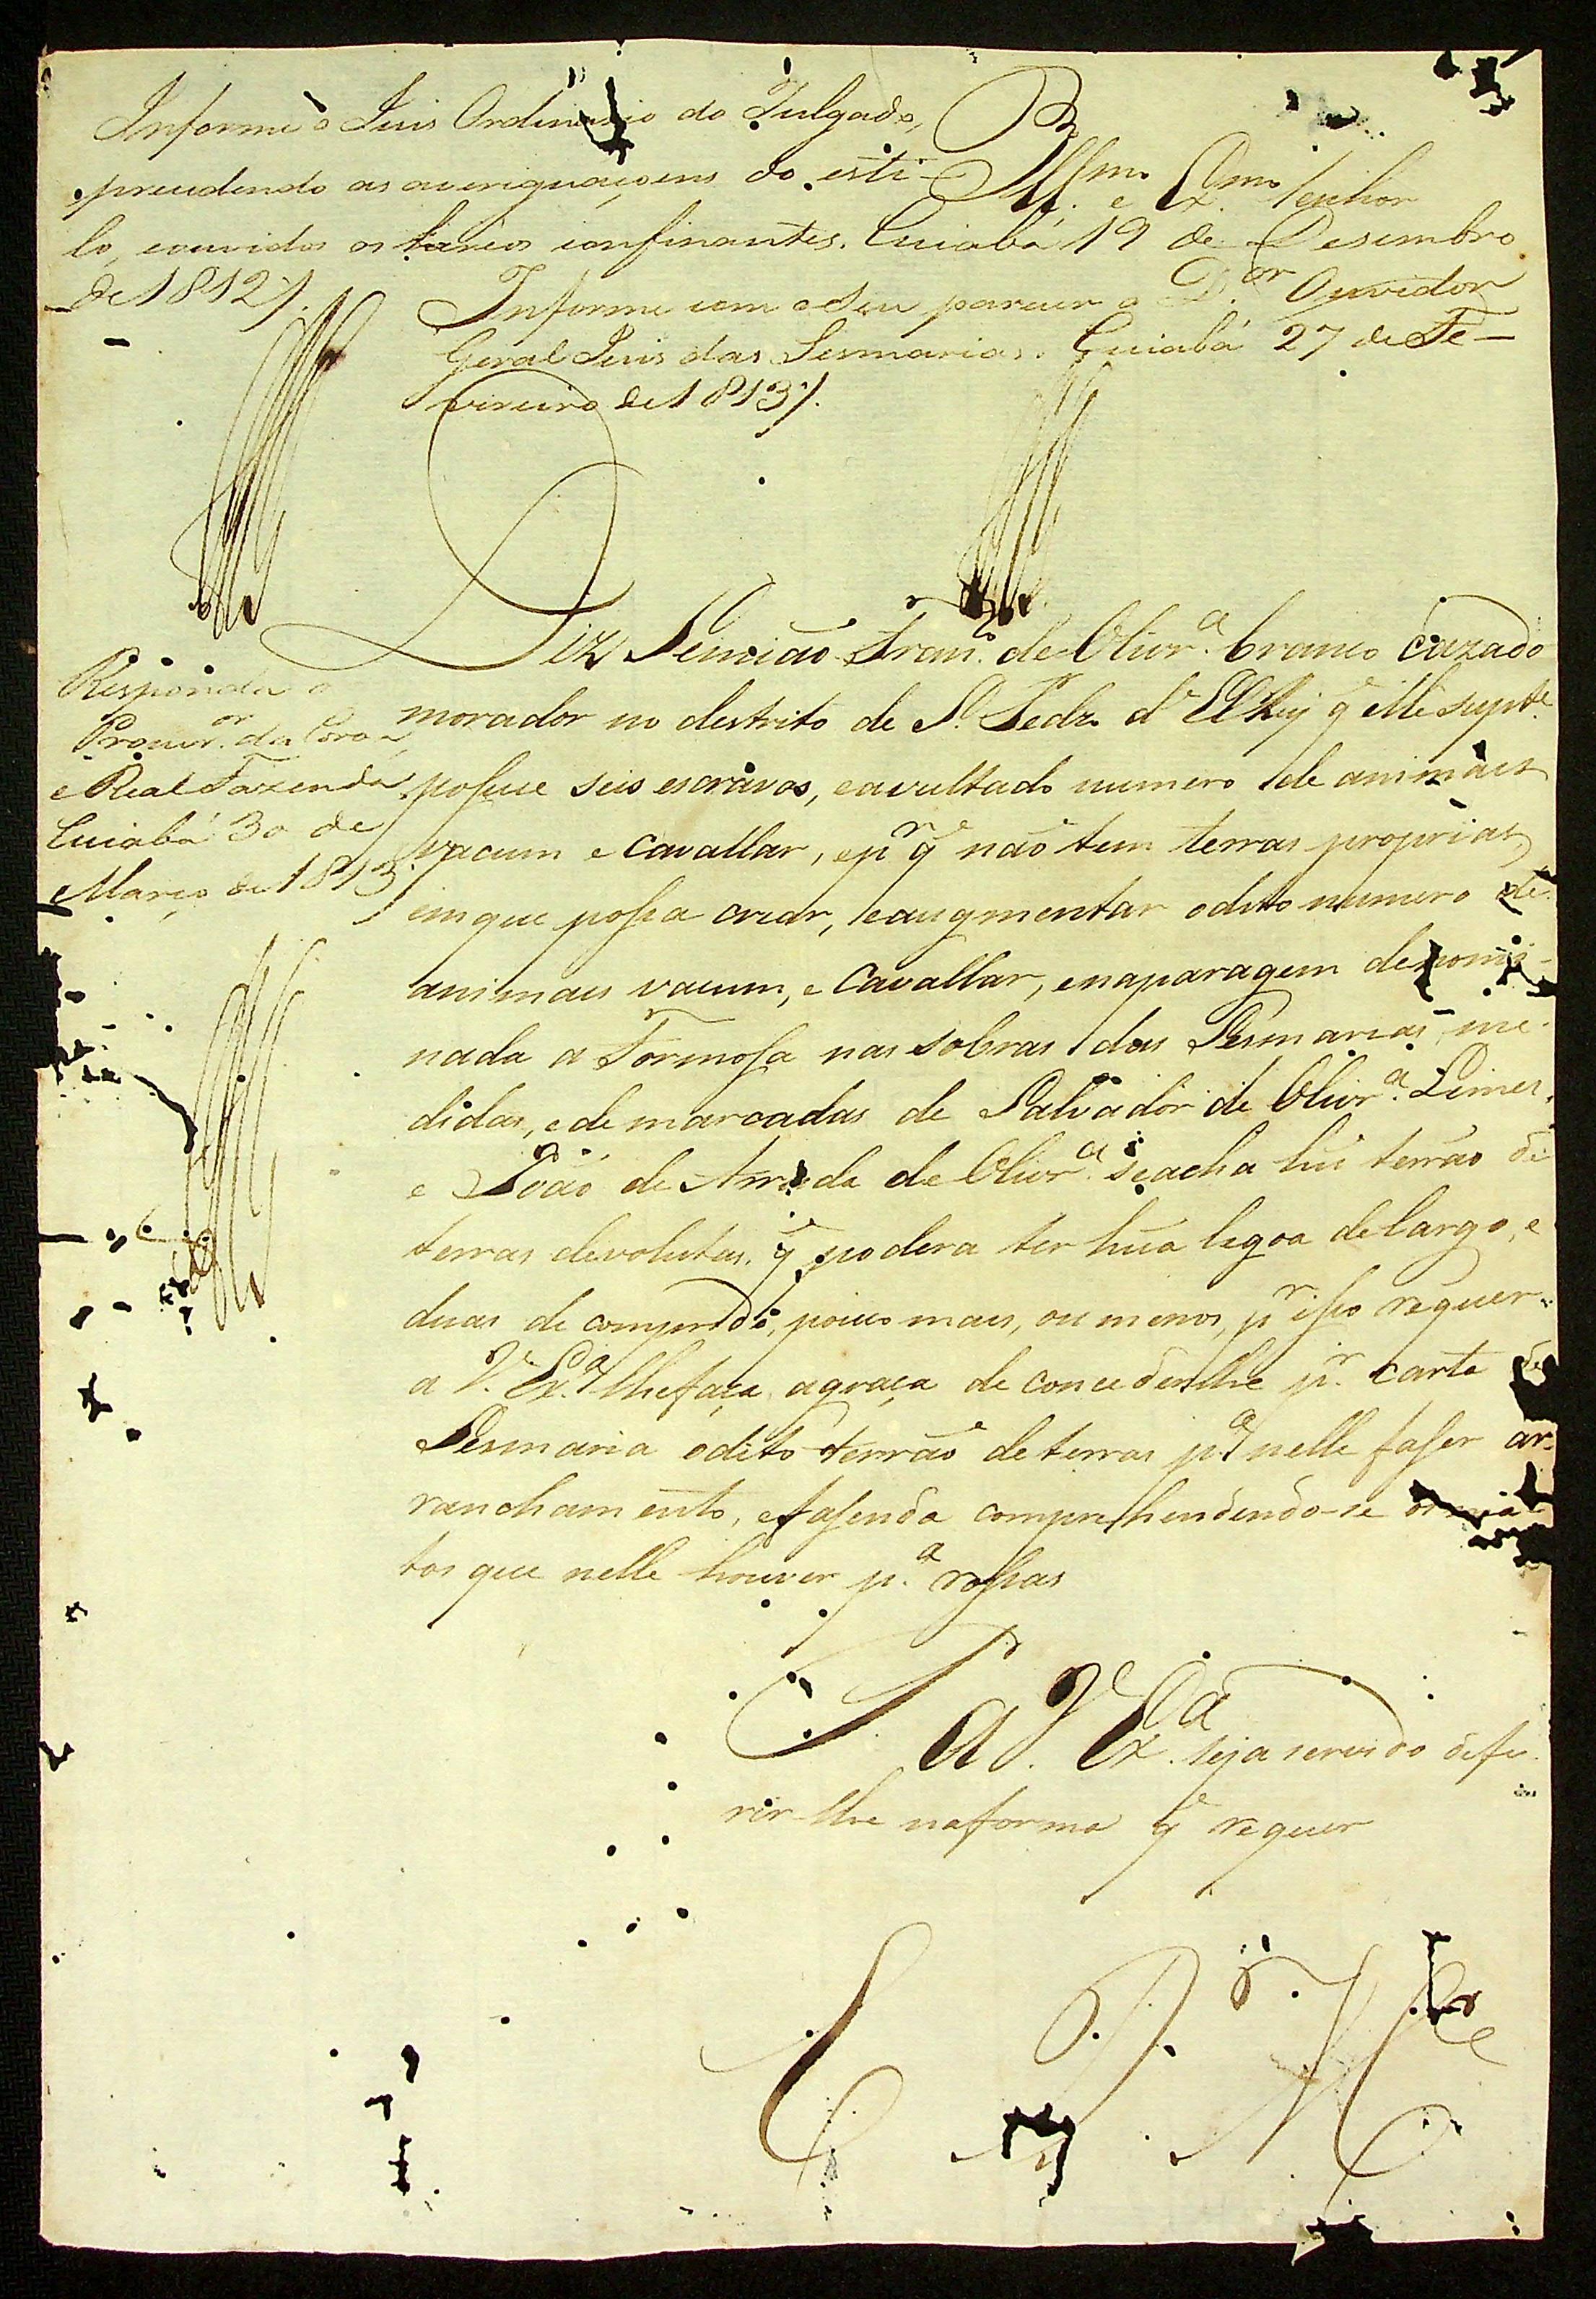 Informe o Juis Ordinario do Julgado,
precedendo as averiguaçoens do esti-
lo, e ouvidos os heréos confinantes. Cuiabá 19 de Desembro
de 1812
Illmo. e Exmo. Senhor
Informe com o seu parecer o D.or Ouvidor
Geral Juis das Sesmarias. Cuiabá 27 de Fe-
vereiro de 1813
Responda o
Procur.or da Coroa,
e Real Fazenda
Cuiabá 30 de
Março de 1813
Diz Semião Fran.co de Olivr.a branco cazado
morador no destrito de S. Pedro d'ElRey q̃ elle supte.
possue seis escravos, e avultado numero de animaes
vacum e cavallar, e pr. q̃ não tem terras proprias,
em que possa criar, e augmentar o dito numero de
animaes vacum, e Cavallar, e na paragem denomi-
nada a Formosa nas sobras das Sesmarias me-
didas, e demarcadas de Salvador de Olivr.a
e João de Arruda de Olivr.a se acha hũ terrão de
terras devolutas, q̃ podera ter hũa legoa de largo, e
duas de comprido, pouco mais, ou menos, pr. isso requer
a V. Ex.a lhe faça a graça de concederlhe pr. carta de
Sesmaria o dito terrão de terras p.a nelle faser ar-
ranchamento, e fasenda comprehendendo-se os ma-
tos que nelle houver p.a rossas
P. a V. Ex.a seja servido defe-
rir-lhe na forma q̃ requer
E R Mce